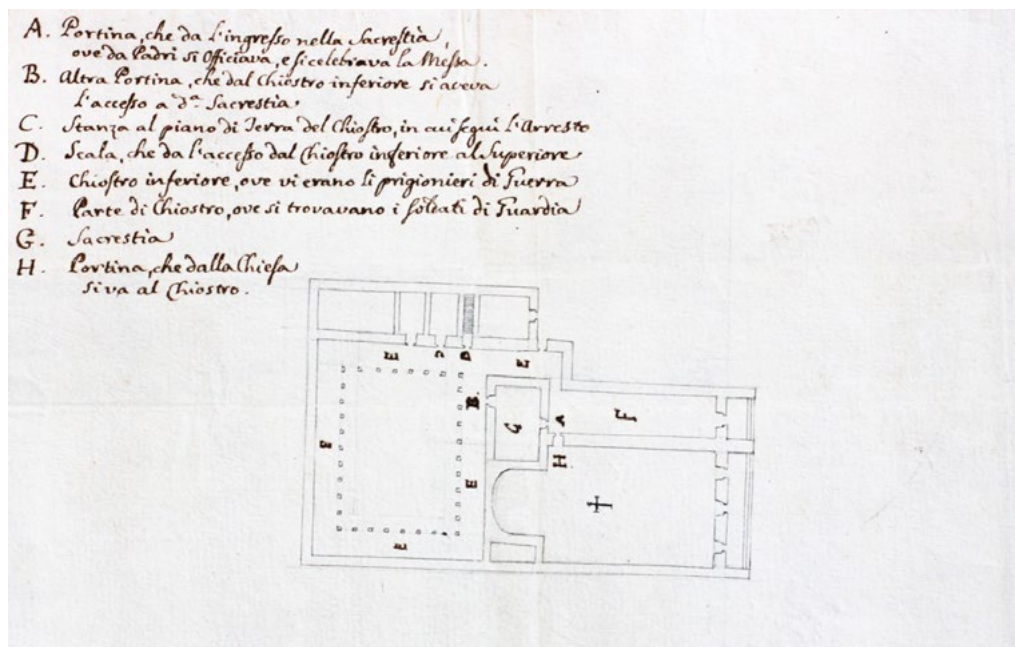 A. Portina, che da l'ingresso nella Sacrestia,
ove da Padri si Officiava, e si celebrava la Messa.
B. Altra Portina, che dal Chiostro inferiore si aveva
l'accesso a d.ª Sacrestia
C. Stanza al piano di Terra del Chiostro, in cui seguì l'Arresto
D. Scala, che da l'accesso dal Chiostro inferiore al Superiore
E. Chiostro inferiore, ove vi erano li prigionieri di Guerra
F. Parte di Chiostro, ove si trovavano i soldati di Guardia
G. Sacrestia
H. Portina, che dalla Chiesa
si va al Chiostro.
E
D
E
B.
A
F
G
F
H
E
E